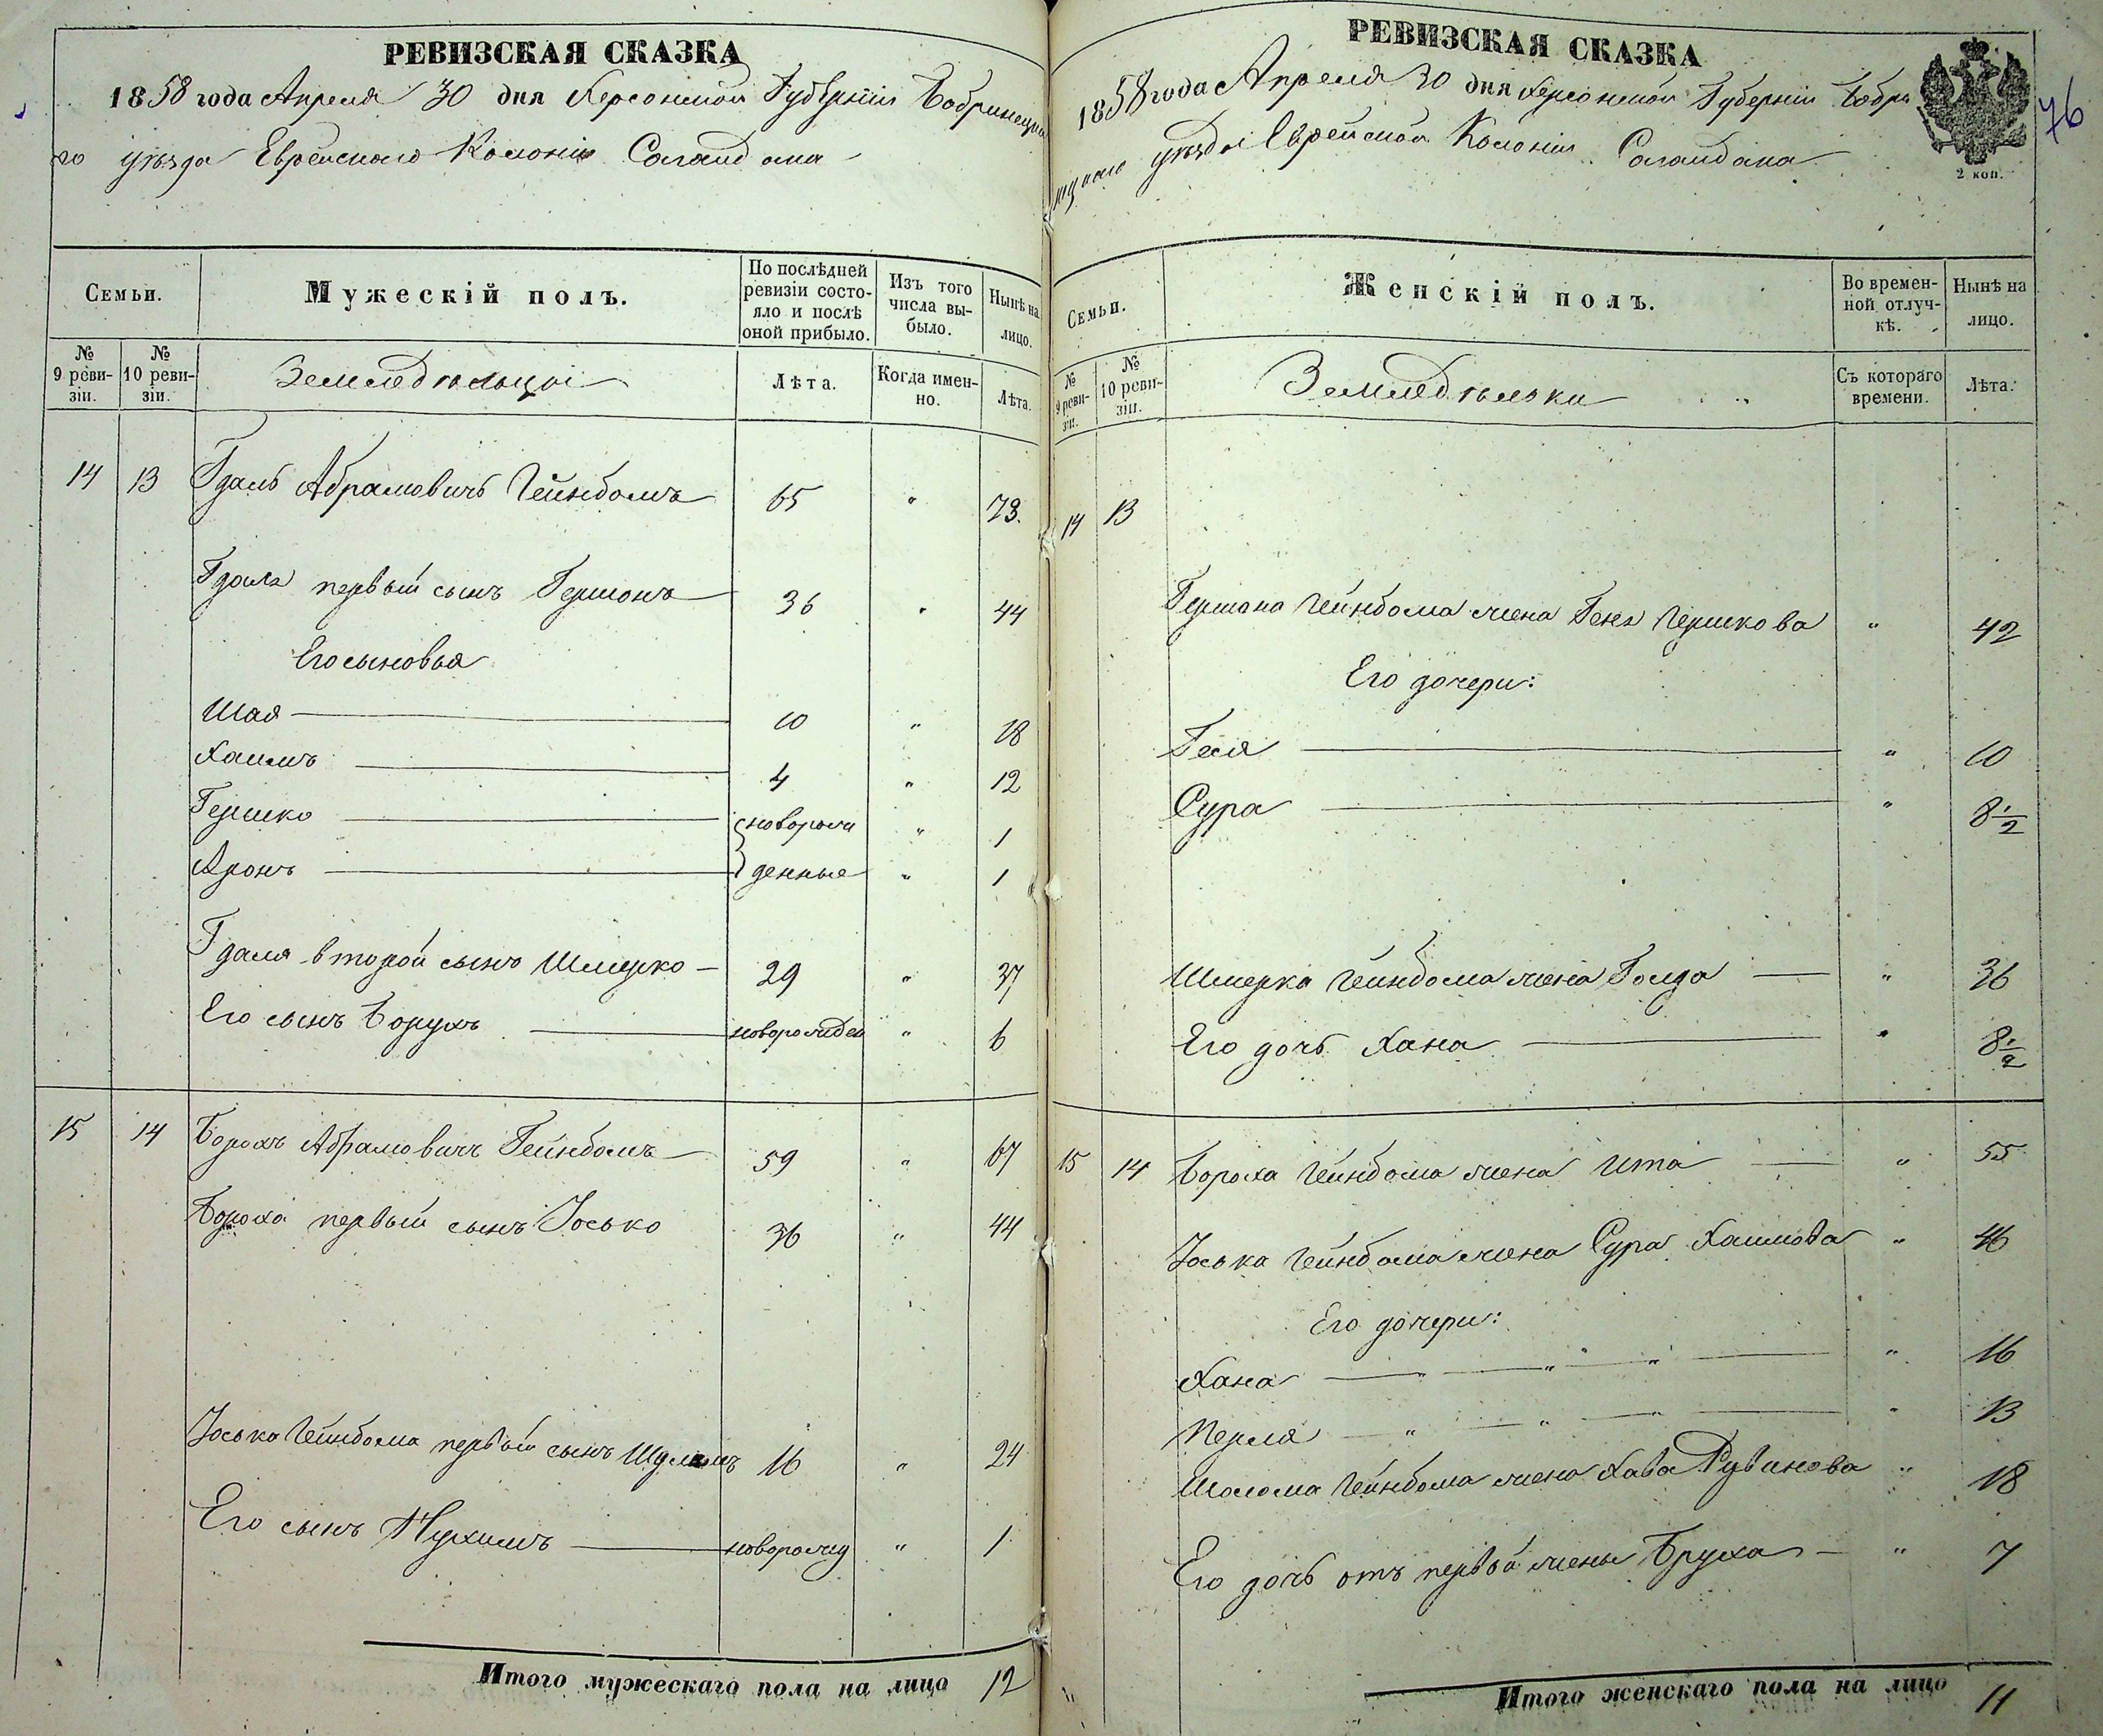 РЕВИЗСКАЯ СКАЗКА
1858 года Апреля 30 дня Херсонской Губерніи Бобринецка
го уѣзда Еврейской Колоніи Сагайдака
Семьи.
Мужескій полъ.
По послѣдней ревизіи состояло и послѣ оной прибыло.
Изъ того числа выбыло.
Нынѣ на лицо.
№ 9 ревизіи.
№ 10 ревизіи.
Земледѣльцы
Лѣта.
Когда именно.
Лѣта.
14 13 Гдаль Абрамовичъ Гейнбомъ 65 " 73.
Гдаля первый сынъ Гершонъ 36 " 44
Его сыновья
Шая 10 " 18
Хаимъ 4 " 12
Гершко новорож " 1
Аронъ денные " 1
Гдаля второй сынъ Шмерко 29 " 37
Его сынъ Борухъ новорожден " 6
15 14 Борохъ Абрамовичъ Гейнбомъ 59 " 67
Бороха первый сынъ Іосько 36 " 44
Іоська Гейнбома первый сынъ Шулимъ 16 " 24
Его сынъ Нухимъ новорожд " 1
Итого мужескаго пола на лицо 12
РЕВИЗСКАЯ СКАЗКА
76
1858 года Апреля 30 дня Херсонской Губерніи Бобри
нецкаго уѣзда Еврейской Колоніи Сагайдака
2 коп.
Семьи.
Женскій полъ.
Во временной отлучкѣ.
Нынѣ на лицо.
№ 9 ревизіи.
№ 10 ревизіи.
Земледѣлки
Съ котораго времени.
Лѣта.
14 13
Гершона Гейнбома жена Геня Гершкова " 42
Его дочери:
Геся " 10
Сура " 8 1/2
Шмерка Гейнбома жена Голда " 36
Его дочь Хана " 8 1/2
15 14 Бороха Гейнбома жена Ита " 55
Іоська Гейнбома жена Сура Хаимова " 46
Его дочери:
Хана " 16
Перля " 13
Шолома Гейнбома жена Хава Рувинова " 18
Его дочь отъ первой жены Бруха " 7
Итого женскаго пола на лицо 11